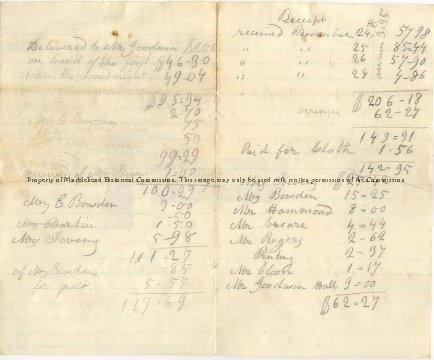 Delivered to Mr Goodwin 81.00
on hand of the first 846-30
49-04
$95-34
2-70
Mrs E Bowden
75
50
99-29
100-29
Mrs E Bowden 3-00
-50
Mrs Martin 1-50
Mrs Loveng 5-98
111-27
of Mrs Bowden -85
for 5-57
117-69
Receipt
received November 24 57 98
" " 25 85=44
" " 26 57-90
" " 28 4-86
$206-18
expenses 62-27
143=91
Paid for Cloth 1-56
142-35
Property of Marblehead Historical Commission. This image may only be used with written permission of the Commission.
Mrs Bowden 15-25
Mr Hammond 8=00
Mr 4=44
Mr Rogers 2-62
Printing 2-37
Mr Cloth 1-17
Mr Goodwin Hall 3=00
$62=27